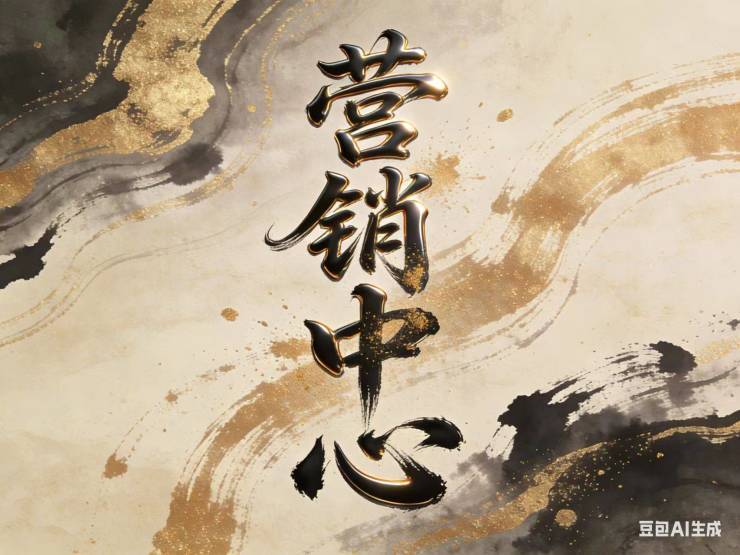 营销中心
豆包AI生成